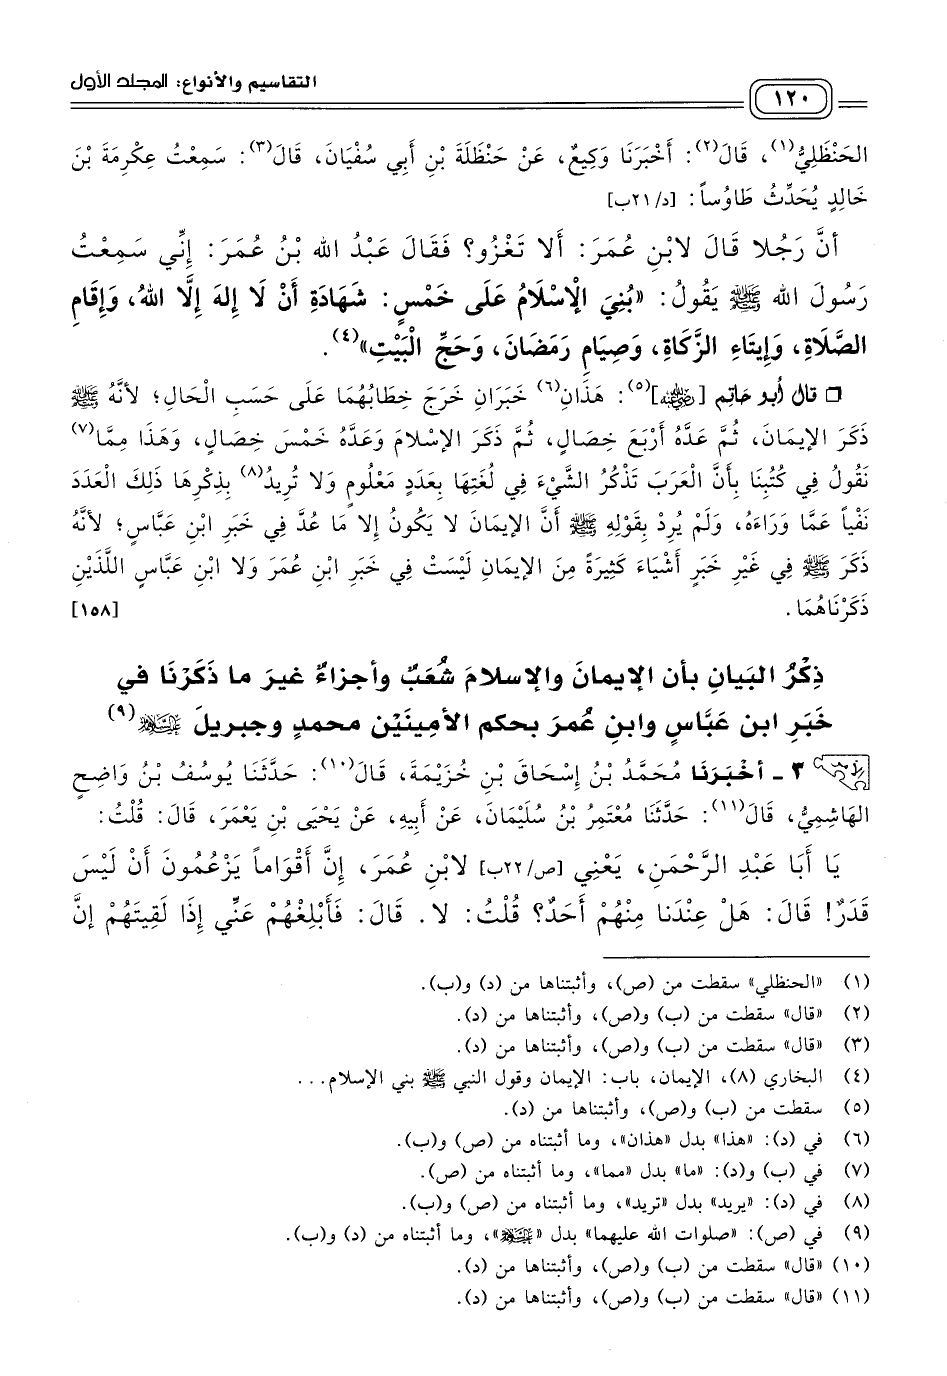 التقاسيم والأنواع: المجلد الأول
١٢٠
الحَنْظَلِيُّ(١)، قَالَ(٢): أَخْبَرَنَا وَكِيعٌ، عَنْ حَنْظَلَةَ بْنِ أَبِي سُفْيَانَ، قَالَ(٣): سَمِعْتُ عِكْرِمَةَ بْنَ
خَالِدٍ يُحَدِّثُ طَاوُساً: [د/٢١ب]
أنَّ رَجُلا قَالَ لابْنِ عُمَرَ: أَلا تَغْزُو؟ فَقَالَ عَبْدُ الله بْنُ عُمَرَ: إِنِّي سَمِعْتُ
رَسُولَ الله ﷺ يَقُولُ: «بُنِيَ الْإِسْلَامُ عَلَى خَمْسٍ: شَهَادَةِ أَنْ لَا إِلهَ إِلَّا اللهُ، وَإِقَامِ
الصَّلَاةِ، وَإِيتَاءِ الزَّكَاةِ، وَصِيَامِ رَمَضَانَ، وَحَجِّ الْبَيْتِ»(٤).
□ قال أبو حاتِم [رضي الله عنه](٥): هَذَانِ(٦) خَبَرَانِ خَرَجَ خِطَابُهُمَا عَلَى حَسَبِ الْحَالِ؛ لأنَّهُ ﷺ
ذَكَرَ الإيمَانَ، ثُمَّ عَدَّهُ أَرْبَعَ خِصَالٍ، ثُمَّ ذَكَرَ الإسْلامَ وَعَدَّهُ خَمْسَ خِصَالٍ، وَهَذَا مِمَّا(٧)
نَقُولُ فِي كُتُبِنَا بِأَنَّ الْعَرَبَ تَذْكُرُ الشَّيْءَ فِي لُغَتِهَا بِعَدَدٍ مَعْلُومٍ وَلا تُرِيدُ(٨) بِذِكْرِهَا ذَلِكَ الْعَدَدَ
نَفْياً عَمَّا وَرَاءَهُ، وَلَمْ يُرِدْ بِقَوْلِهِ ﷺ أَنَّ الإيمَانَ لا يَكُونُ إلا مَا عُدَّ فِي خَبَرِ ابْنِ عَبَّاسٍ؛ لأنَّهُ
ذَكَرَ ﷺ فِي غَيْرِ خَبَرٍ أَشْيَاءَ كَثِيرَةً مِنَ الإيمَانِ لَيْسَتْ فِي خَبَرِ ابْنِ عُمَرَ وَلا ابْنِ عَبَّاسٍ اللَّذَيْنِ
ذَكَرْنَاهُمَا. [١٥٨]
ذِكْرُ البَيانِ بأن الإيمانَ والإسلامَ شُعَبٌ وأجزاءٌ غيرَ ما ذَكَرْنَا في
خَبَرِ ابن عَبَّاسٍ وابنِ عُمرَ بحكم الأمِينَيْن محمدٍ وجبريلَ عليهما السلام(٩)
٣ - أخْبَرَنَا مُحَمَّدُ بْنُ إِسْحَاقَ بْنِ خُزَيْمَةَ، قَالَ(١٠): حَدَّثَنَا يُوسُفُ بْنُ وَاضِحٍ
الهَاشِمِيُّ، قَالَ(١١): حَدَّثَنَا مُعْتَمِرُ بْنُ سُلَيْمَانَ، عَنْ أَبِيهِ، عَنْ يَحْيَى بْنِ يَعْمَرَ، قَالَ: قُلْتُ:
يَا أَبَا عَبْدِ الرَّحْمَنِ، يَعْنِي [ص/٢٢ب] لابْنِ عُمَرَ، إِنَّ أَقْوَاماً يَزْعُمُونَ أَنْ لَيْسَ
قَدَرٌ! قَالَ: هَلْ عِنْدَنَا مِنْهُمْ أَحَدٌ؟ قُلْتُ: لا. قَالَ: فَأَبْلِغْهُمْ عَنِّي إِذَا لَقِيتَهُمْ إنَّ
(١) «الحنظلي» سقطت من (ص)، وأثبتناها من (د) و(ب).
(٢) «قال» سقطت من (ب) و(ص)، وأثبتناها من (د).
(٣) «قال» سقطت من (ب) و(ص)، وأثبتناها من (د).
(٤) البخاري (٨)، الإيمان، باب: الإيمان وقول النبي ﷺ بني الإسلام...
(٥) سقطت من (ب) و(ص)، وأثبتناها من (د).
(٦) في (د): «هذا» بدل «هذان»، وما أثبتناه من (ص) و(ب).
(٧) في (ب) و(د): «ما» بدل «مما»، وما أثبتناه من (ص).
(٨) في (د): «يريد» بدل «تريد»، وما أثبتناه من (ص) و(ب).
(٩) في (ص): «صلوات الله عليهما» بدل «عليهما السلام»، وما أثبتناه من (د) و(ب).
(١٠) «قال» سقطت من (ب) و(ص)، وأثبتناها من (د).
(١١) «قال» سقطت من (ب) و(ص)، وأثبتناها من (د).